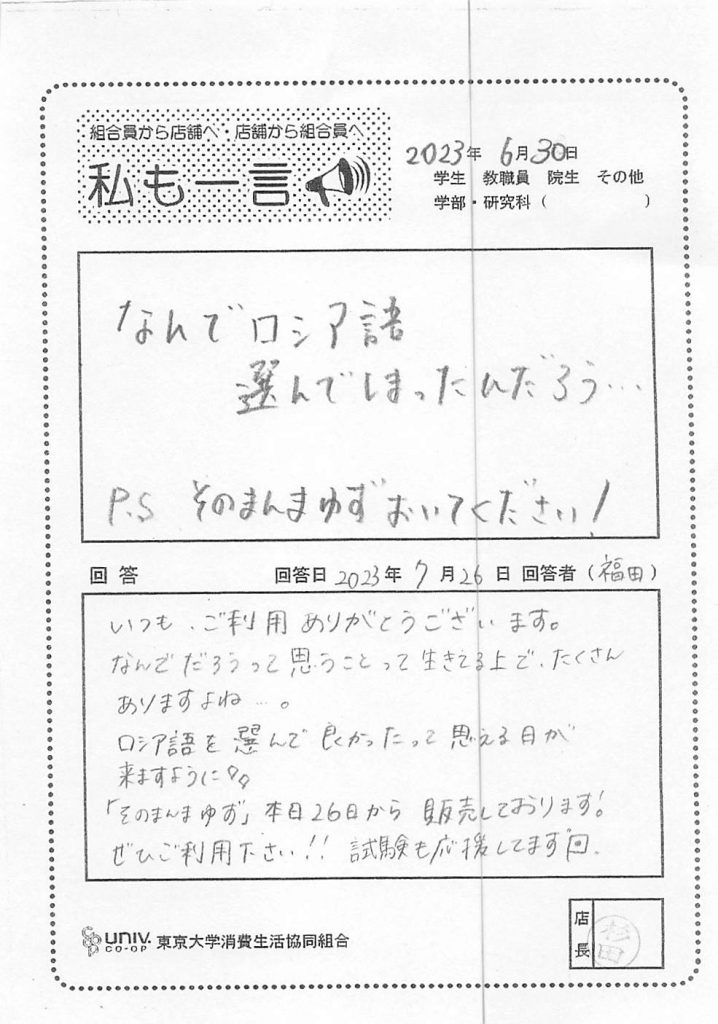 組合員から店舗へ・店舗から組合員へ
私も一言
2023年 6月30日
学生 教職員 院生 その他
学部・研究科（ ）
なんでロシア語
選んでしまったんだろう…
P.S そのまんまゆずおいてください!
回答 回答日 2023年 7月26日 回答者（福田）
いつも、ご利用ありがとうございます。
なんでだろうって思うことって生きてる上で、たくさん
ありますよね…。
ロシア語を選んで良かったって思える日が
来ますように
「そのまんまゆず」本日26日から販売しております!
ぜひご利用下さい!! 試験も応援してます
UNIV. CO-OP 東京大学消費生活協同組合
店長
杉田